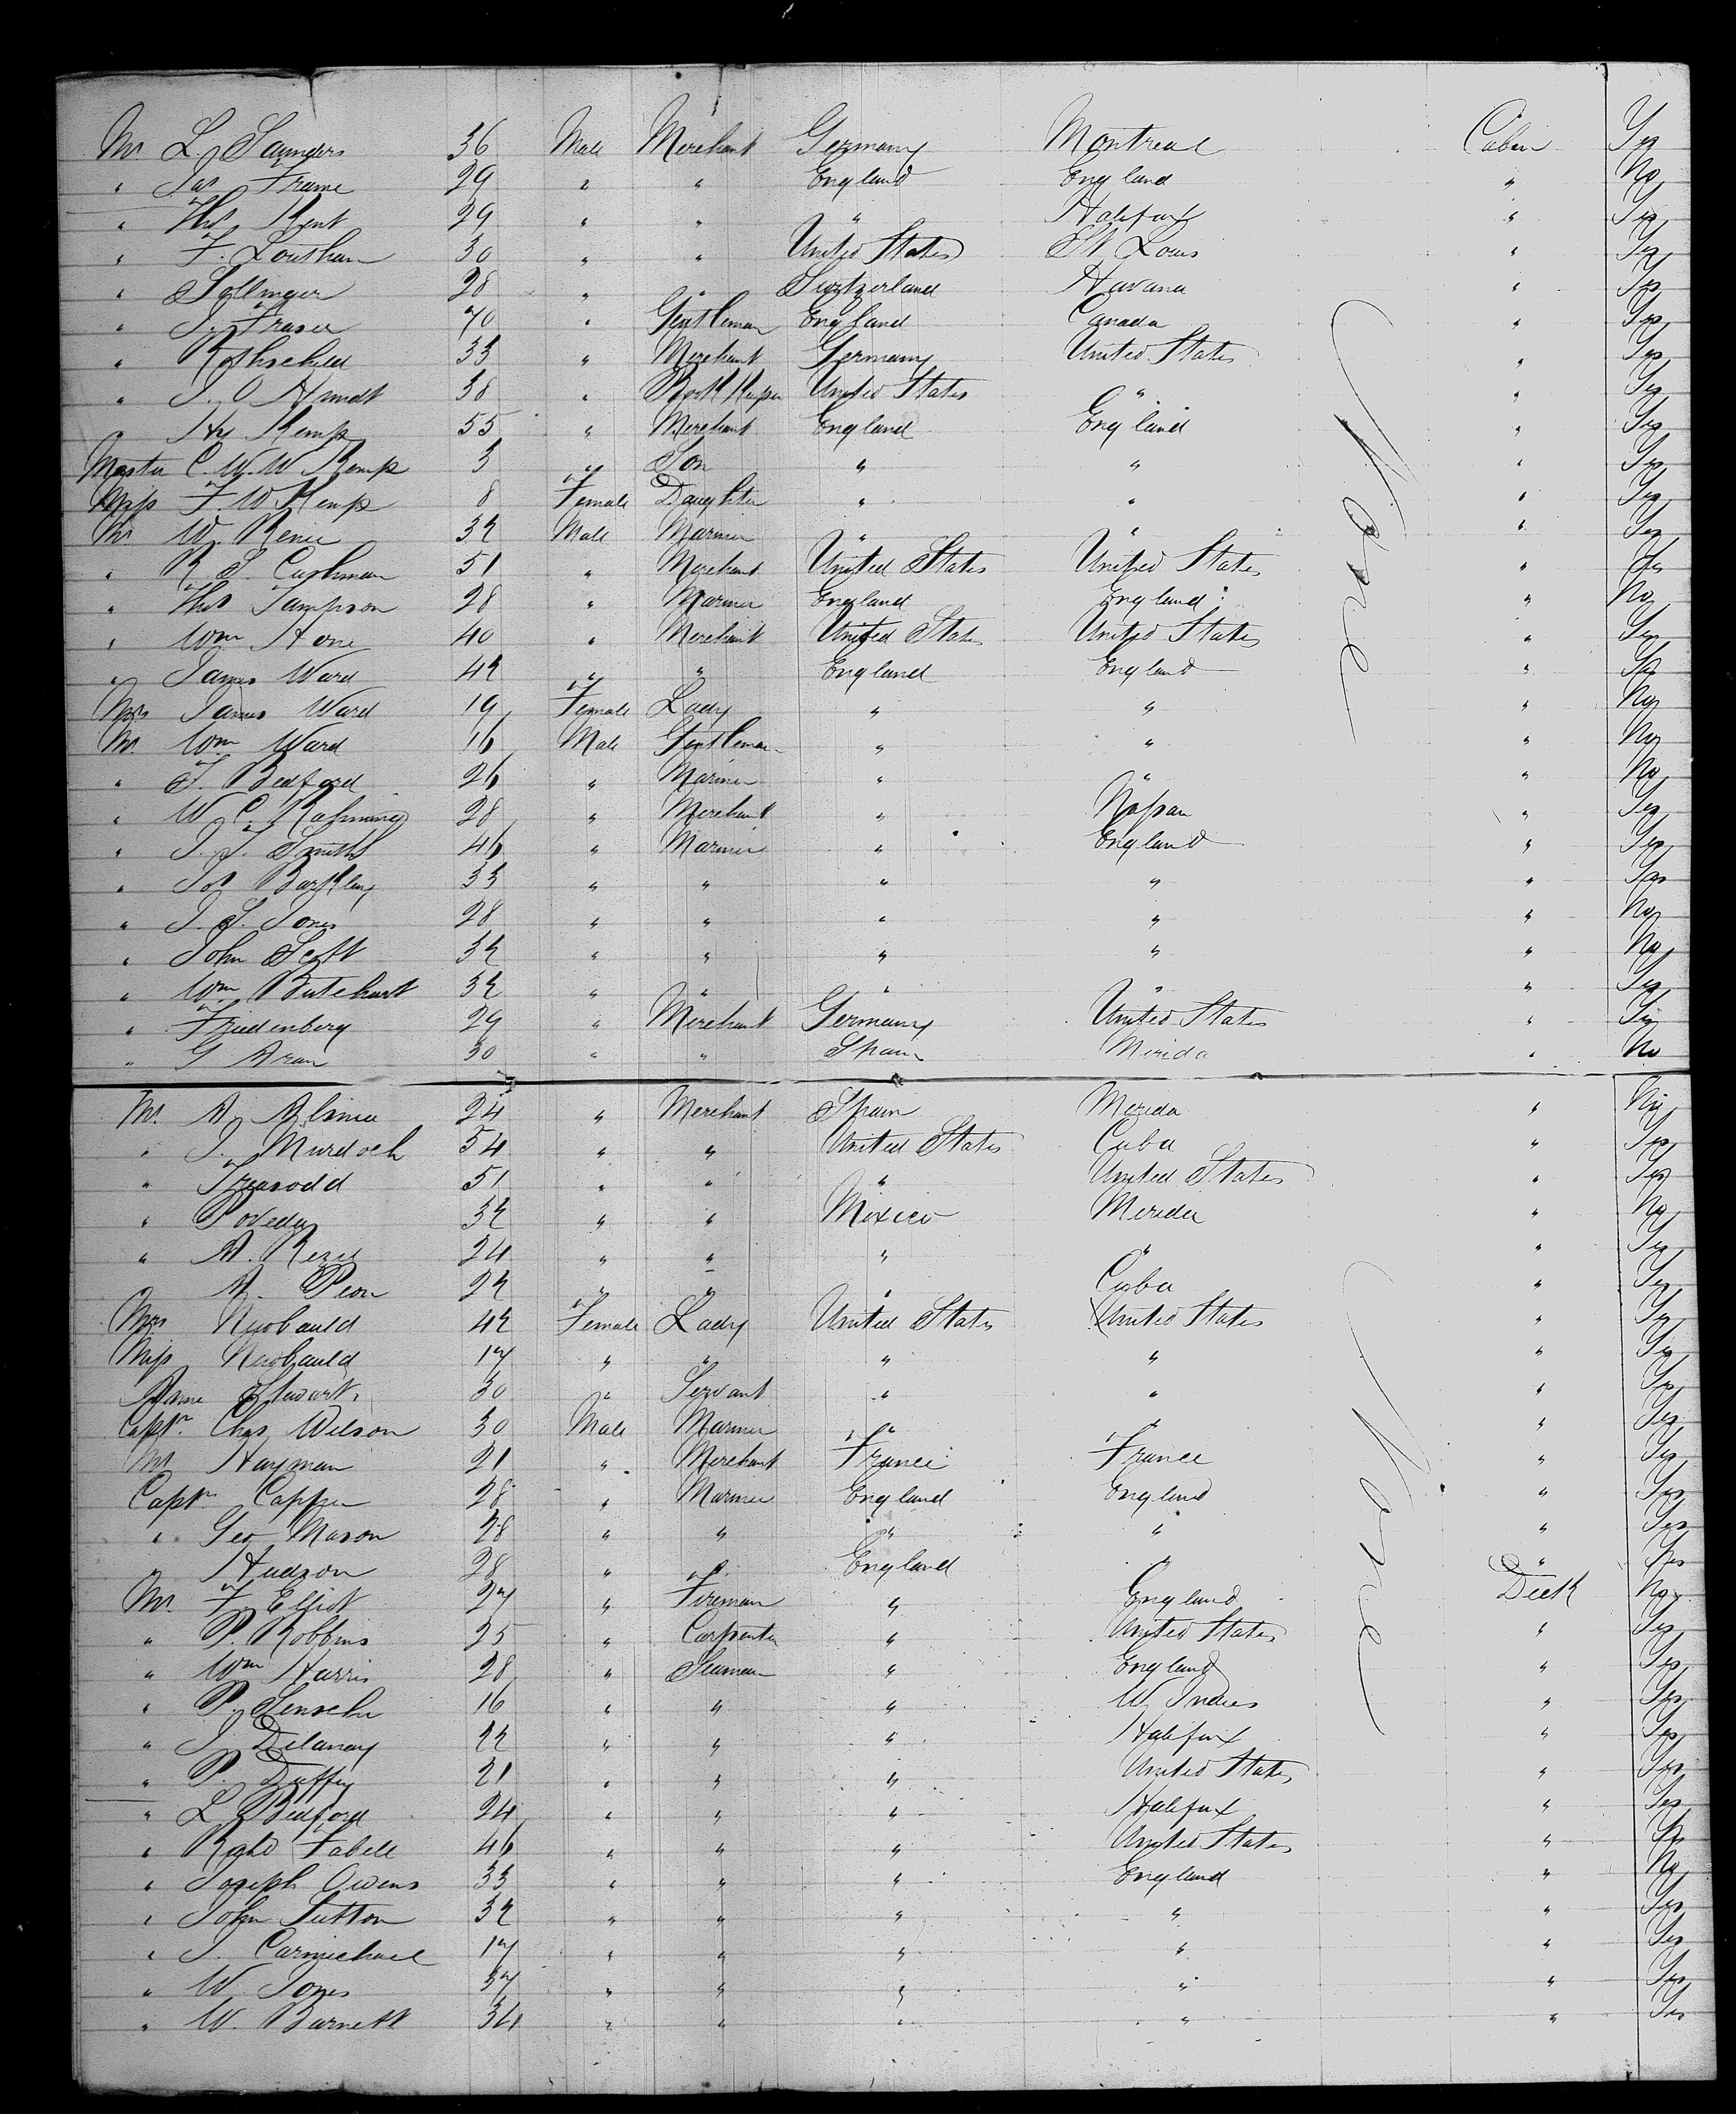 Mr L. Saunders 36 Male Merchant Germany Montreal Cabin Yes
" Jas Frame 29 " " England England " No
" Thos Kent 29 " " " Halifax " Yes
" F. Louthan 30 " " United States St Louis " Yes
" Sollinger 28 " " Switzerland Havana " Yes
" J. Fraser 40 " Gentleman England Canada " Yes
" Rothschild 33 " Merchant Germany United States " Yes
" J. O Arndt 38 " Book Keeper United States " " Yes
" Hy Kemp 55 " Merchant England England " Yes
Master C. W. W Kemp 3 " Son " " " Yes
Miss F. W Kemp 8 Female Daughter " " " Yes
Mr W. Renie 32 Male Mariner " " " Yes
" R S. Cushman 51 " Merchant United States United States " Yes
" Thos Sampson 28 " Mariner England England " No
" Wm Hone 40 " Merchant United States United States " Yes
" James Ward 42 " " England England " Yes
Mrs James Ward 19 Female Lady " " " No
Mr. Wm Ward 16 Male Gentleman " " " No
" F. Bedford 26 " Mariner " " " No
" W C. Rahming 28 " Merchant " Nassau " Yes
" J. J. Smith 46 " Mariner " England " Yes
" Jos Barkley 33 " " " " " Yes
" J. S. Jones 28 " " " " " No
" John Scott 32 " " " " " No
" Wm Butchart 32 " " " " " Yes
" Friedenberg 29 " Merchant Germany United States " Yes
" G Aran 30 " " Spain Merida " No
None
Mr. A. Alsina 24 " Merchant Spain Merida " No
" J. Murdoch 54 " " United States Cuba " Yes
" 51 " " " United States " Yes
" Poveda 32 " " Mexico Merida " No
" A. 24 " " " " " Yes
A. Peon 22 " " " Cuba " Yes
Mrs Newbauld 42 Female Lady United States United States " Yes
Miss Newbauld 17 " " " " " Yes
Anne Stewart. 30 " Servant " " " Yes
Captn. Chas Wilson 30 Male Mariner " " " Yes
Mr Hayman 21 " Merchant France France " Yes
Captn Capper 28 " Mariner England England " Yes
" Geo Mason 28 " " " " " Yes
" Hudson 28 " " England " " Yes
Mr. F. Elliot 27 " Fireman " England Deck No
" P. Robbins 25 " Carpenter " United States " Yes
" Wm Harris 28 " Seaman " England " Yes
" P. 16 " " " W. Indies " Yes
" J Delanay 22 " " " Halifax " Yes
" P. Duffey 21 " " " United States " Yes
" L. Bedford 24 " " " Halifax " Yes
" Richd Fabell 46 " " " United States " Yes
" Joseph Owens 33 " " " England " No
" John Sutton 32 " " " " " Yes
" J. Carmichael 17 " " " " " Yes
" W. Jones 37 " " " " " Yes
" W. Barnett 34 " " " " " Yes
None